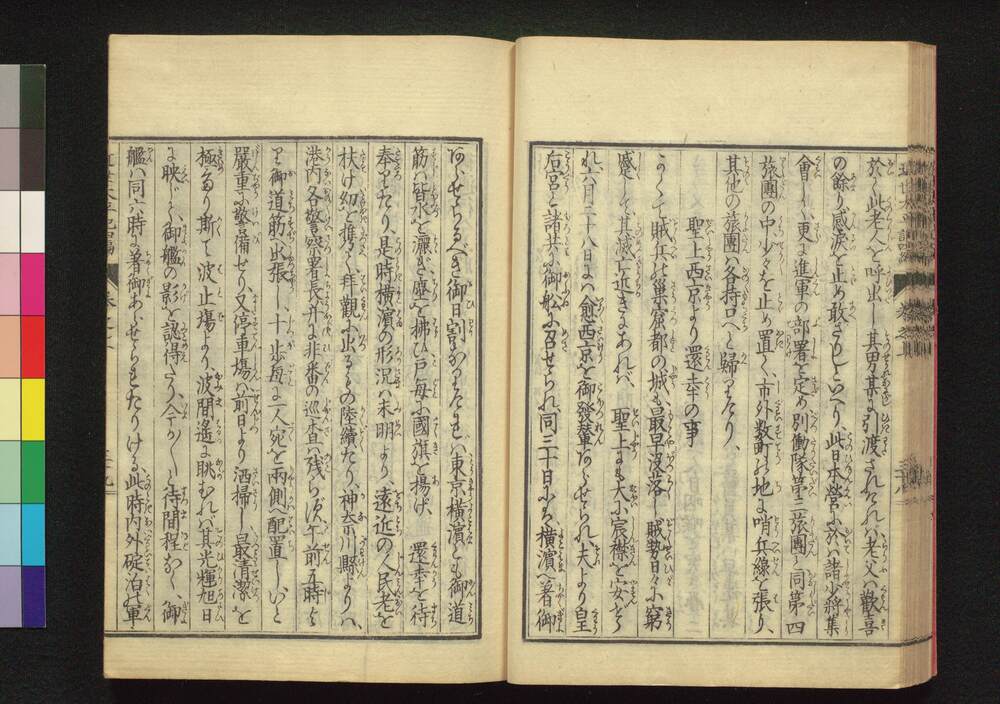 於て此老人を呼出し其男某に引渡されけれバ老父ハ歡喜
の餘り感涙を止め敢ざりしといへり、此日本營に於ハ諸少將集
會し更に進軍の部署を定め別働隊第二旅團と同第四
旅團の中少々を止め置て、市外数町の地に哨兵線を張り、
其他の旅團ハ各持口へと歸りたり、
聖上西京より還幸の事
かくて賊兵の巢窟都の城も最早沒落し賊勢日々に窮
蹙して其滅亡近きにあれバ、聖上にも大に宸襟を安んぜら
れ六月二十八日にハ愈西京を御發輦あらせられ夫より皇
后宮と諸共に御船に召せられ、同三十日にハ橫濱へ著御
あらせらるべき御日割なりけれバ東京橫濱とも御道
筋ハ皆水を灑ぎ塵を拂ひ戸毎に國旗を揚げ、還幸を待
奉りたり、是時橫濱の形況ハ未明より、遠近の人民老を
扶け幼を携へて拜觀に出るもの陸續たり、神奈川縣よりハ、
港内各警察署長并に非番の巡査ハ残らず午前五時よ
り御道筋へ出張し、十歩毎に一人宛を兩側へ配置し、いと
嚴重に警備せり、又停車塲ハ前日より洒掃し最清潔を
極めたり斯て波止塲より波間遙に眺むれバ其光輝旭日
に映じて、御艦の影を認得たり今か〱と待間程なく、御
艦ハ同六時に著御あらせられたりける、此時内外碇泊の軍